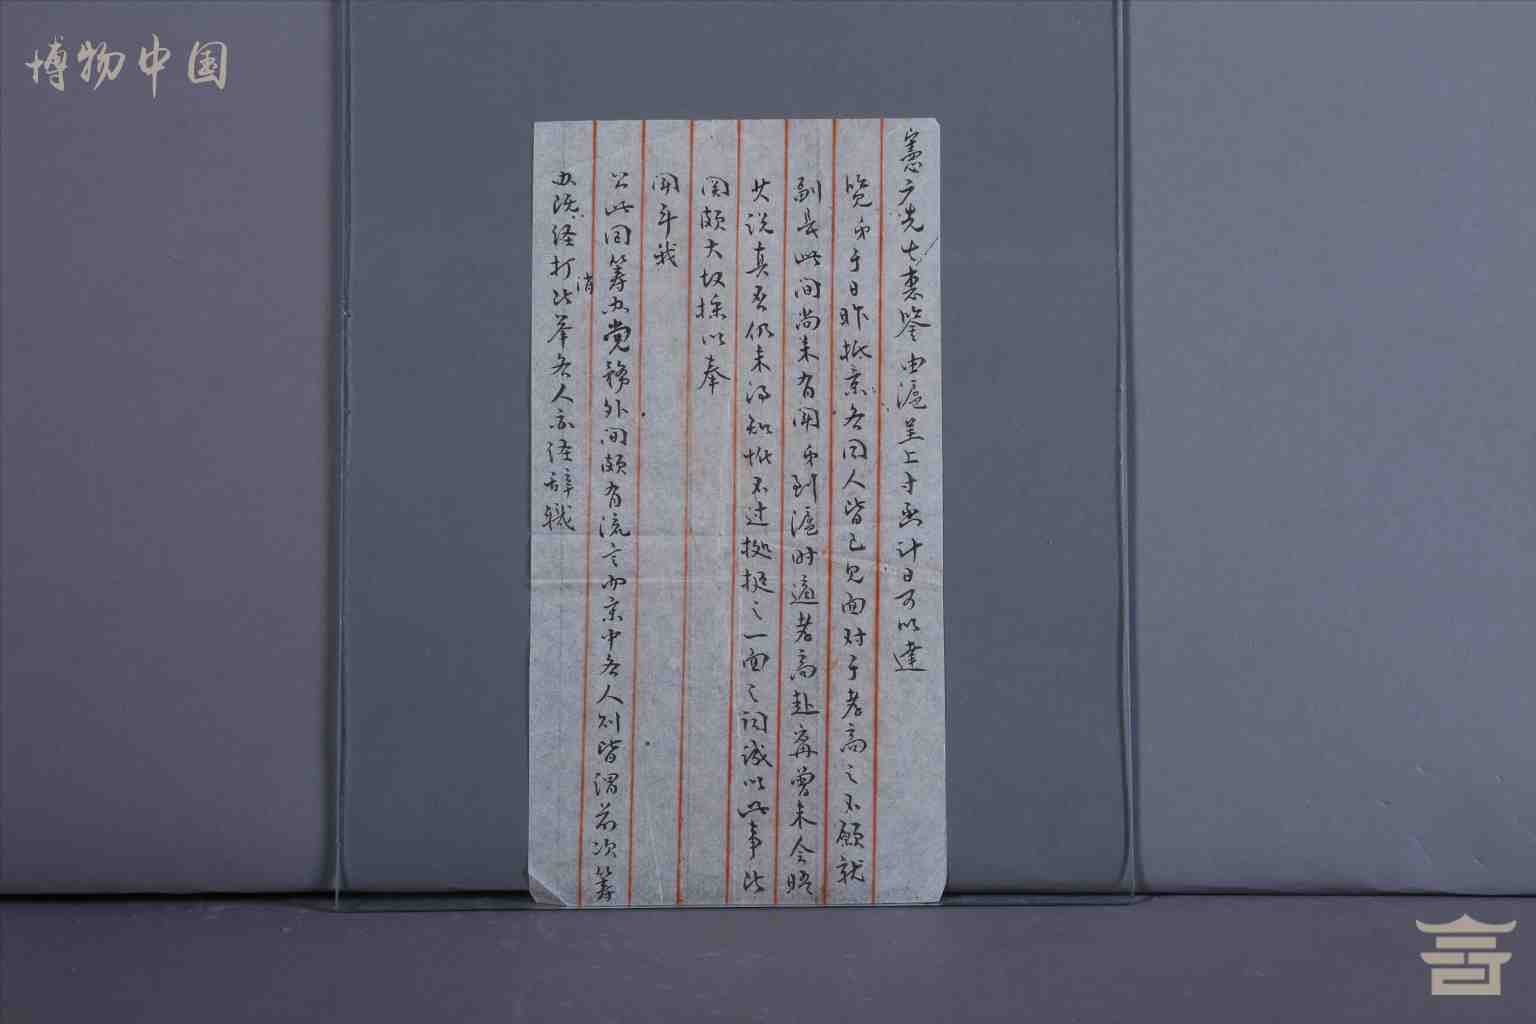 博物中国
憲广先生惠鉴由滬呈上寸函计日可以達
览弟于日昨抵京各同人皆已见面对于孝高之不願就
副長此间尚未有闻弟到滬时适孝高赴寗曾未会晤
其说真否仍未得知惟不过挺之一面之词诚以此事比
関頗大故採以奉
闻耳我
公此回筹办党務外间頗有流言而京中各人则皆谓前次筹
办既经打消此举各人亦经辞職